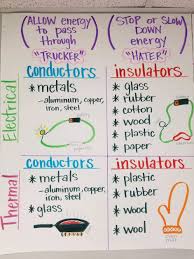 (ALLOW energy to pass through)
"TRUCKER"
(STOP or SLOW DOWN energy)
"HATER"
Electrical
conductors
* metals
- aluminum, copper, iron, steel
insulators
* glass
* rubber
* cotton
* wood
* plastic
* paper
Thermal
conductors
* metals
- aluminum, copper, iron, steel
* glass
insulators
* plastic
* rubber
* wood
* wool